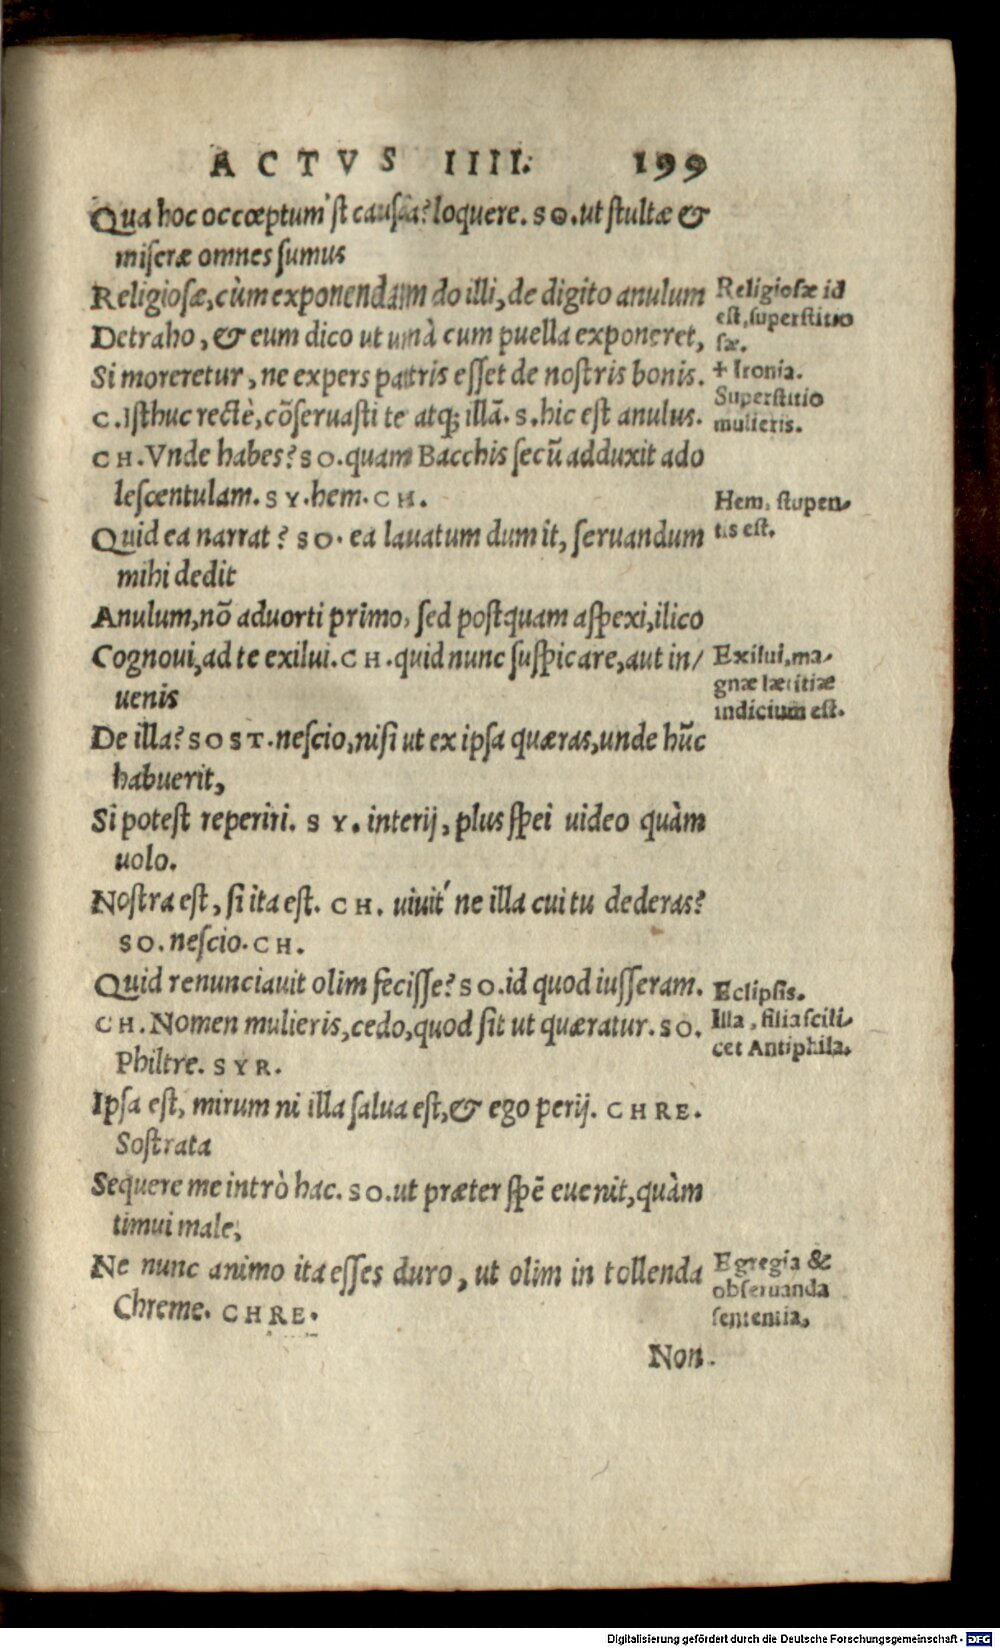 ACTVS IIII. 199
Qua hoc occœptum'st causa? loquere. SO. ut stultæ &
miseræ omnes sumus
Religiosæ, cùm exponendam do illi, de digito anulum
Detraho, & eum dico ut unà cum puella exponeret,
Si moreretur, ne expers partris esset de nostris bonis.
C. Isthuc rectè, cõseruasti te atq; illã. S. hic est anulus.
CH. Vnde habes? SO. quam Bacchis secũ adduxit ado
lescentulam. SY. hem. CH.
Quid ea narrat? SO. ea lauatum dum it, seruandum
mihi dedit
Anulum, nõ aduorti primo, sed postquam aspexi, ilico
Cognoui, ad te exilui. CH. quid nunc suspicare, aut in/
uenis
De illa? SOST. nescio, nisi ut ex ipsa quæras, unde hũc
habuerit,
Si potest reperiri. SY. interij, plus spei uideo quàm
uolo.
Nostra est, si ita est. CH. uiuit'ne illa cui tu dederas?
SO. nescio. CH.
Quid renunciauit olim fecisse? SO. id quod iusseram.
CH. Nomen mulieris, cedo, quod sit ut quæratur. SO.
Philtre. SYR.
Ipsa est, mirum ni illa salua est, & ego perij. CHRE.
Sostrata
Sequere me intrò hac. SO. ut præter spẽ euenit, quàm
timui male,
Ne nunc animo ita esses duro, ut olim in tollenda
Chreme. CHRE.
Non.
Religiosæ id
est, superstitio
sæ.
+ Ironia.
Superstitio
mulieris.
Hem, stupen-
tis est.
Exilui, ma-
gnæ lætitiæ
indicium est.
Eclipsis.
Illa, filia scili-
cet Antiphila.
Egregia &
obseruanda
sententia,
Digitalisierung gefördert durch die Deutsche Forschungsgemeinschaft - DFG